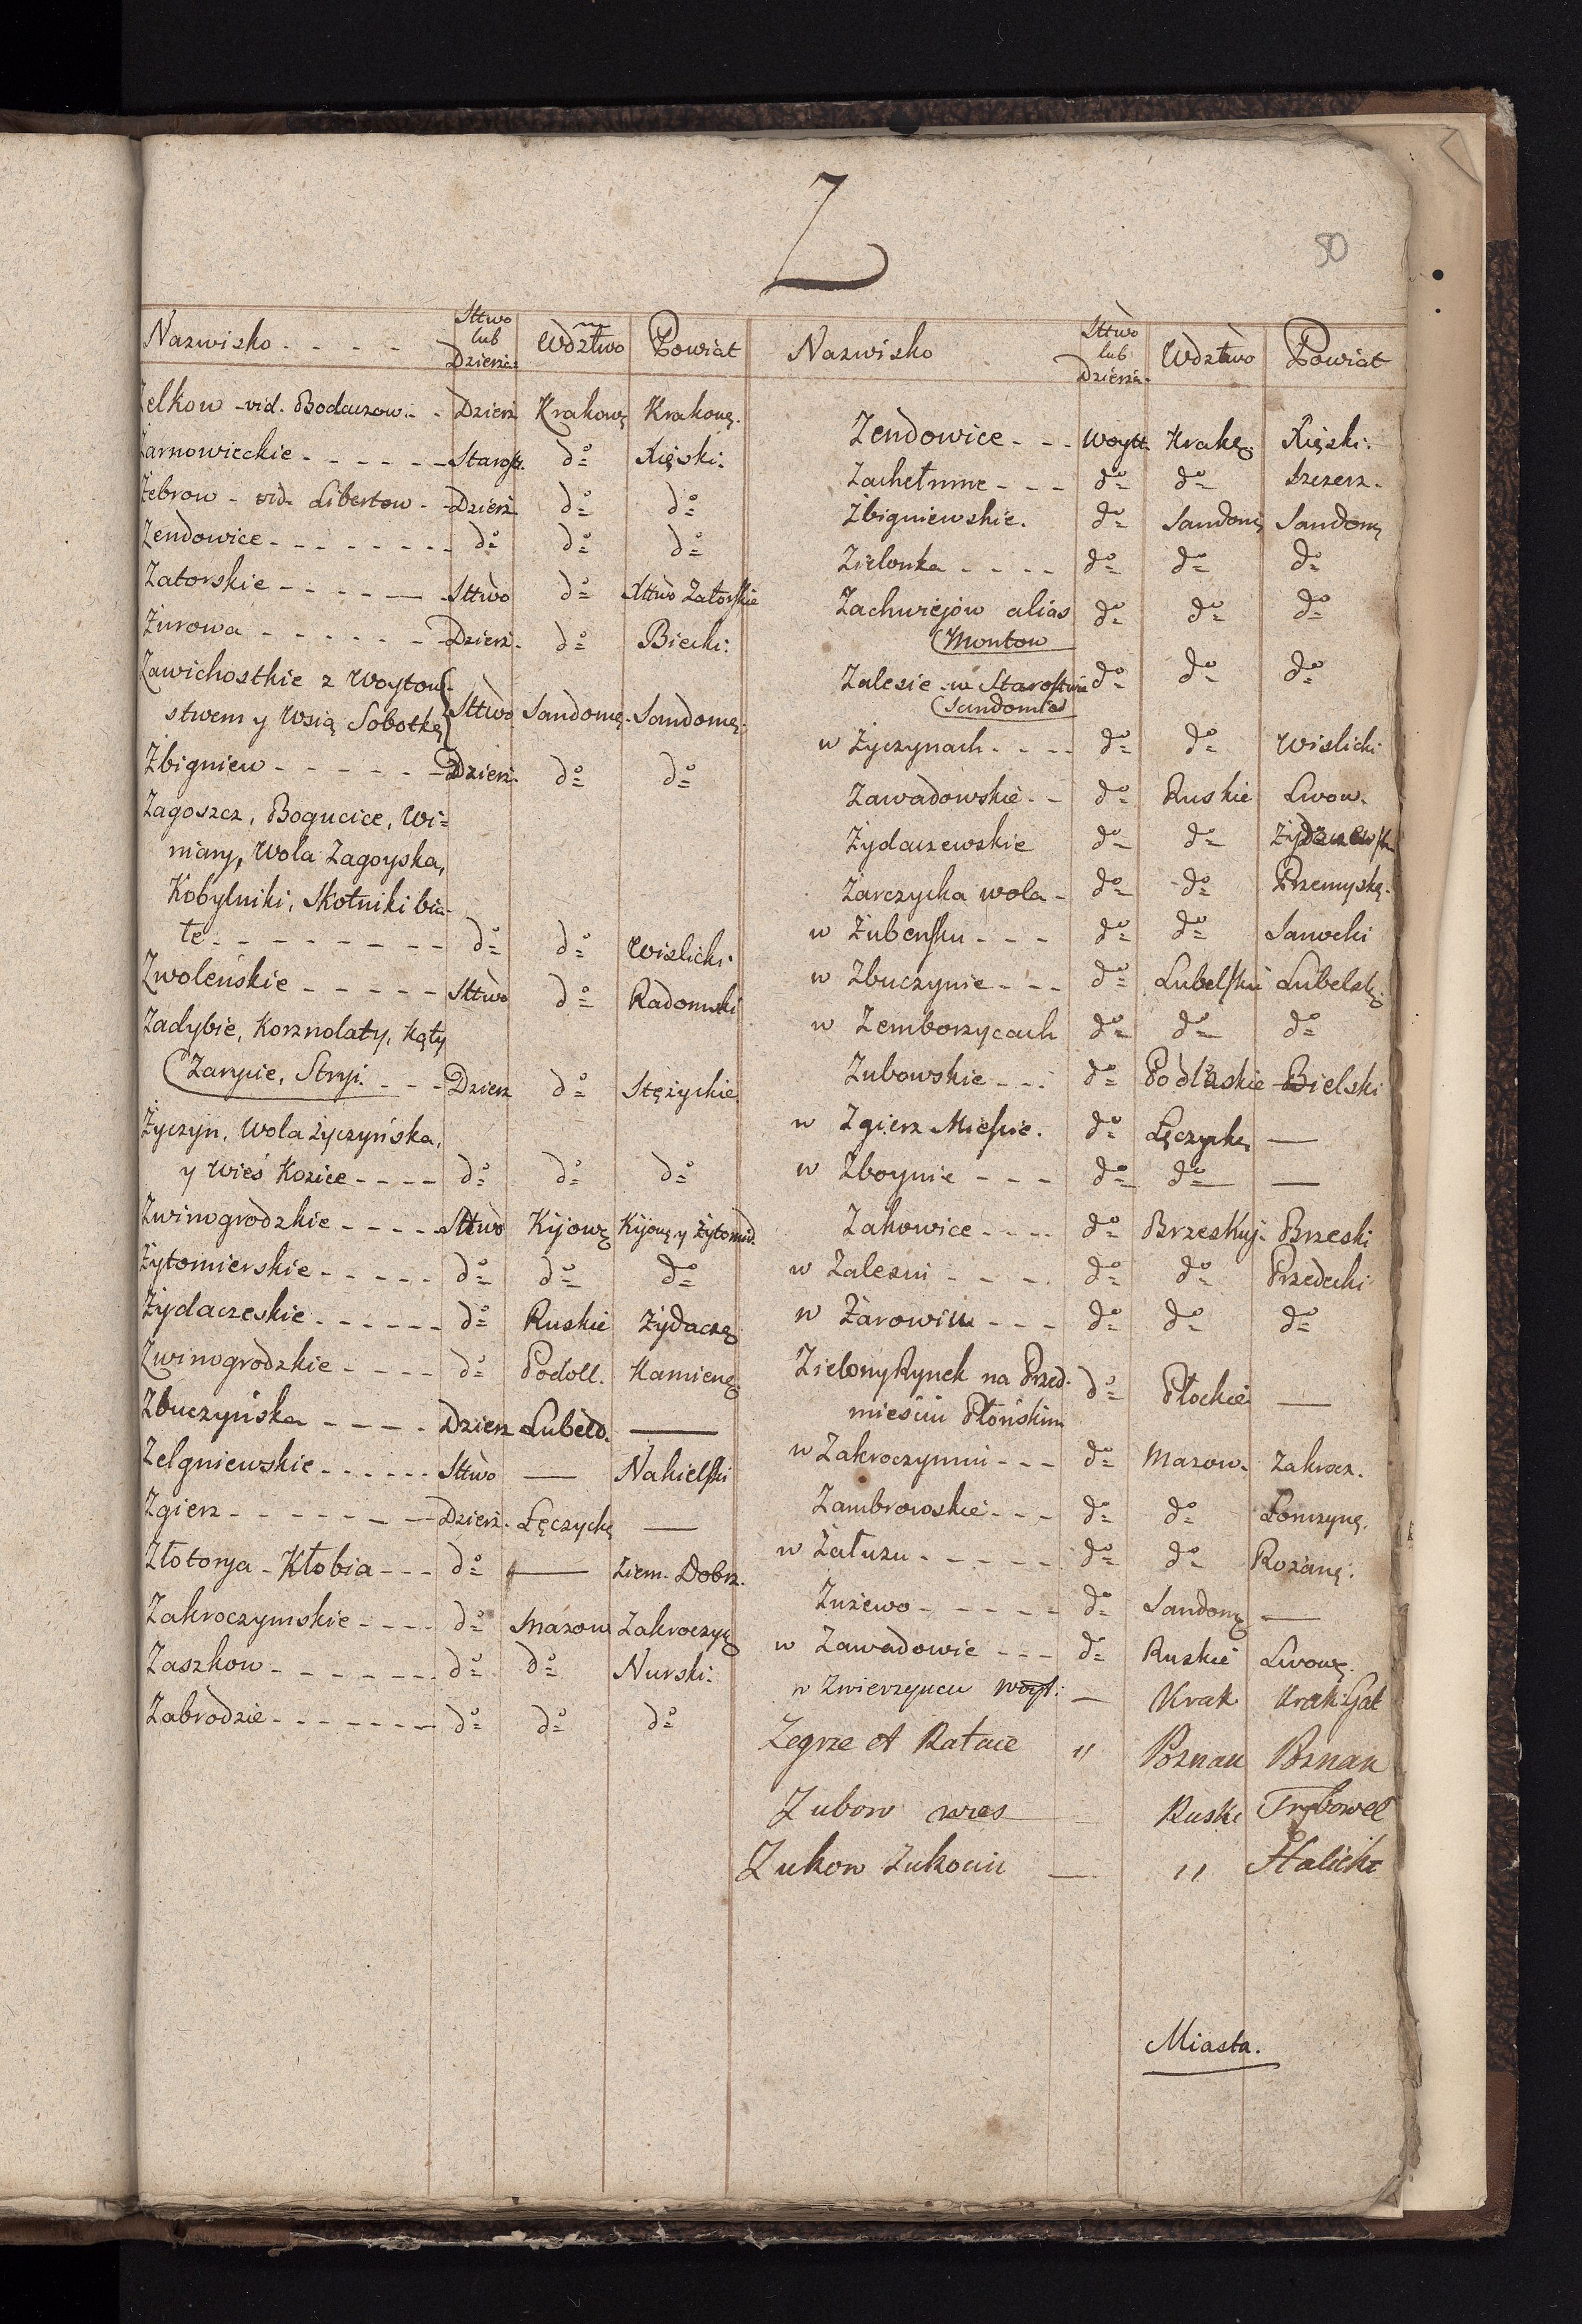 Z
50
Nazwisko - - - - Sttwo lub Dzierża: Wdztwo Powiat
Zelkow - vid. Bodaczow - - Dzierż Krakowę Krakowę.
Żarnowieckie - - - - - - Starost. do Xięski:
Żebrow - vid. Libertow - - Dzierż do do
Zendowice - - - - - - - - do do do
Zatorskie - - - - - Sttwo do Xttwo Zatorskie
Żurowa - - - - - - Dzierż. do Biecki:
Zawichostkie z Woytow-
stwem y Wsią Sobotkę Sttwo Sandomę. Sandomę.
Zbigniew - - - - - - Dzierż. do do
Zagoszcz, Bogucice, Wi=
niary, Wola Zagoyska,
Kobylniki, Skotniki bia-
łe - - - - - - - - do do Wislicki.
Zwoleńskie - - - - - Sttwo do Radomski
Zadybie, Korznolaty, Kąty
Zarycie, Stryj. - - - Dzierz do Stężyckie.
Życzyn, Wola Życzyńska,
y Wieś Kozice - - - - do do do
Zwinogrodzkie - - - - Sttwo Kijowę Kijowę y Żytomid.
Żytomierskie - - - - - do do do
Żydaczeskie - - - - - - do Ruskie Żydaczę
Zwinogrodzkie - - - - do Podoll. Kamienę
Zbuczyńska - - - - Dzierz Lubeld. —
Zelgniewskie - - - - - - Sttwo — Nakielski
Zgierz - - - - - - - Dzierż. Łęczyckę —
Złotorya - Kłobia - - - do — Ziem. Dobrz.
Zakroczymskie - - - - do Mazow Zakroczyę
Zaszkow - - - - - - - do do Nurski:
Zabrodzie - - - - - - - do do do
Nazwisko Sttwo lub Dzierża- Wdztwo Powiat
Zendowice - - - Woytt. Krakę. Xięski:
Zachełmne - - - do do Szczerz.
Zbigniewskie. do Sandomę Sandomę
Zielonka - - - - do do do
Zachwiejów alias do do do
Montow
Zalesie w Starostwie do do do
Sandomier
w Życzynach - - - - do do Wislicki
Zawadowskie - - do Ruskie Lwow.
Żydaczewskie do do Żydaczewsk
Żarczycka wola - do do Przemyskę.
w Żubensku - - - do do Sanocki
w Zbuczynie - - - do Lubelskie Lubelskę
w Zemborzycach do do do
Zubowskie - - - do Podlaskie Bielski
w Zgierz Mieście. do Łęczyckę —
w Zboynie - - - do do —
Zakowice - - - - do BrzesKuj. Brzeski
w Zalesiu - - - - do do Przedecki
w Żarowiu - - - do do do
Zielony Rynek na Przed- do Płockie —
mieściu Płońskim
w Zakroczymiu - - - do Mazow. Zakrocz.
Zambrowskie - - - do do Łomzynę.
w Załuzu - - - - - do do Rożanę.
Zużewo - - - - - do Sandomę —
w Zawadowie - - - do Ruskie Lwowę.
w Zwierzyncu Woyt: — Krak Krak: Gal
Zegrze et Rataie " Poznan Poznan
Zubow wies — Ruski Trębowel
Zukow Zukocin — " Halicki
Miasta.